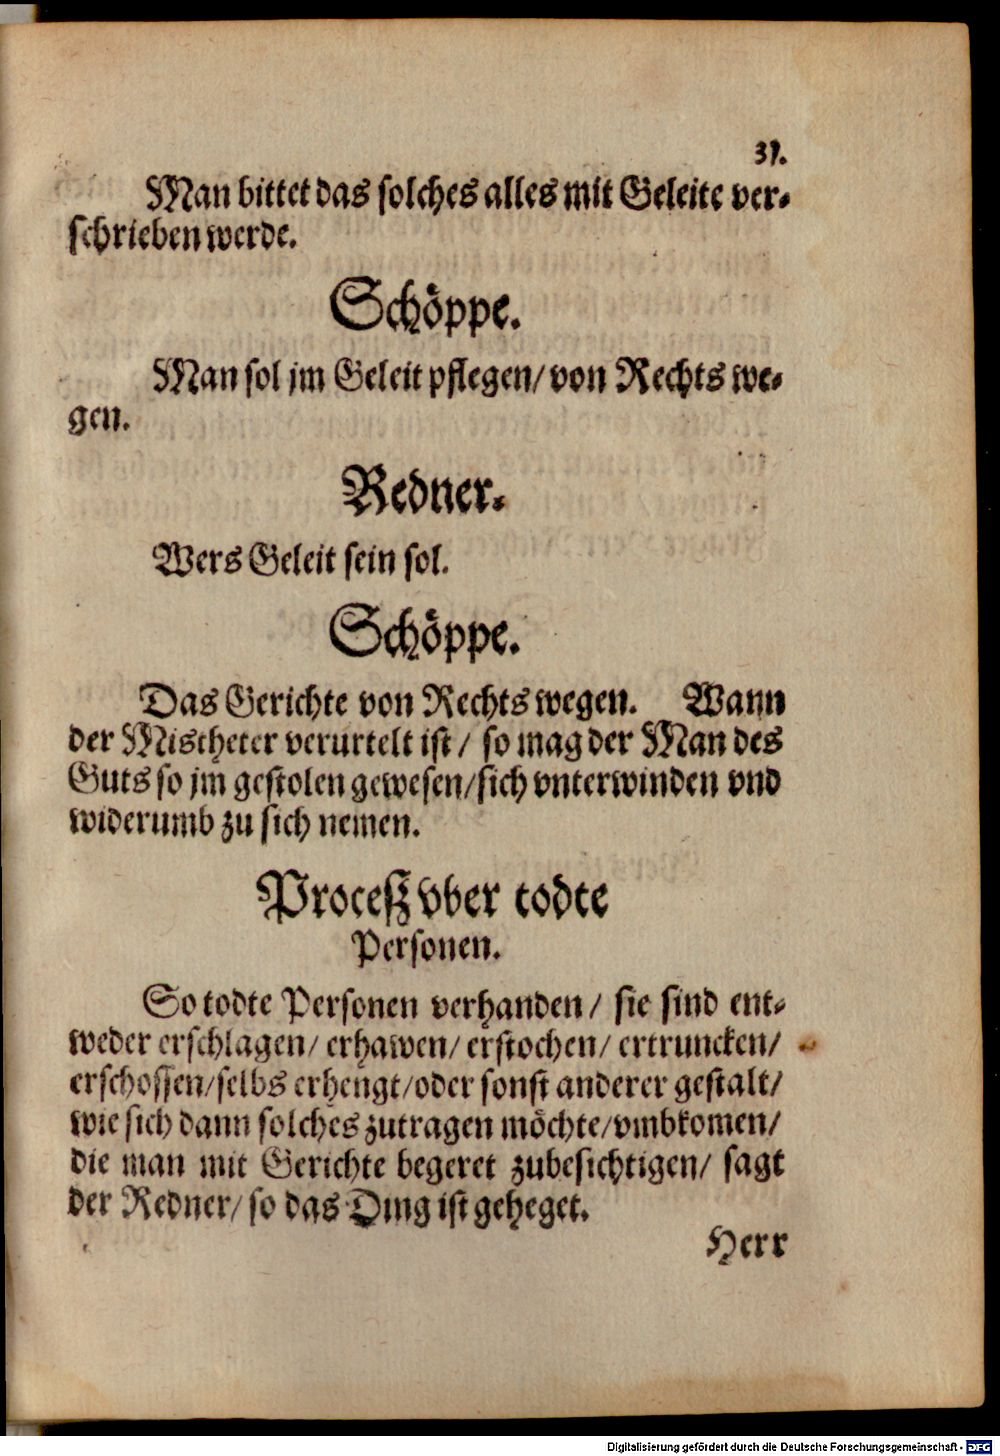 37.
Man bittet das solches alles mit Geleite ver-
schrieben werde.
Schöppe.
Man sol jm Geleit pflegen/ von Rechts we-
gen.
Redner.
Wers Geleit sein sol.
Schöppe.
Das Gerichte von Rechts wegen. Wann
der Mistheter verurtelt ist/ so mag der Man des
Guts so jm gestolen gewesen/ sich vnterwinden vnd
widerumb zu sich nemen.
Proceß vber todte
Personen.
So todte Personen verhanden/ sie sind ent-
weder erschlagen/ erhawen/ erstochen/ ertruncken/
erschossen/ selbs erhengt/ oder sonst anderer gestalt/
wie sich dann solches zutragen möchte/ vmbkomen/
die man mit Gerichte begeret zubesichtigen/ sagt
der Redner/ so das Ding ist geheget.
Herr
Digitalisierung gefördert durch die Deutsche Forschungsgemeinschaft - DFG